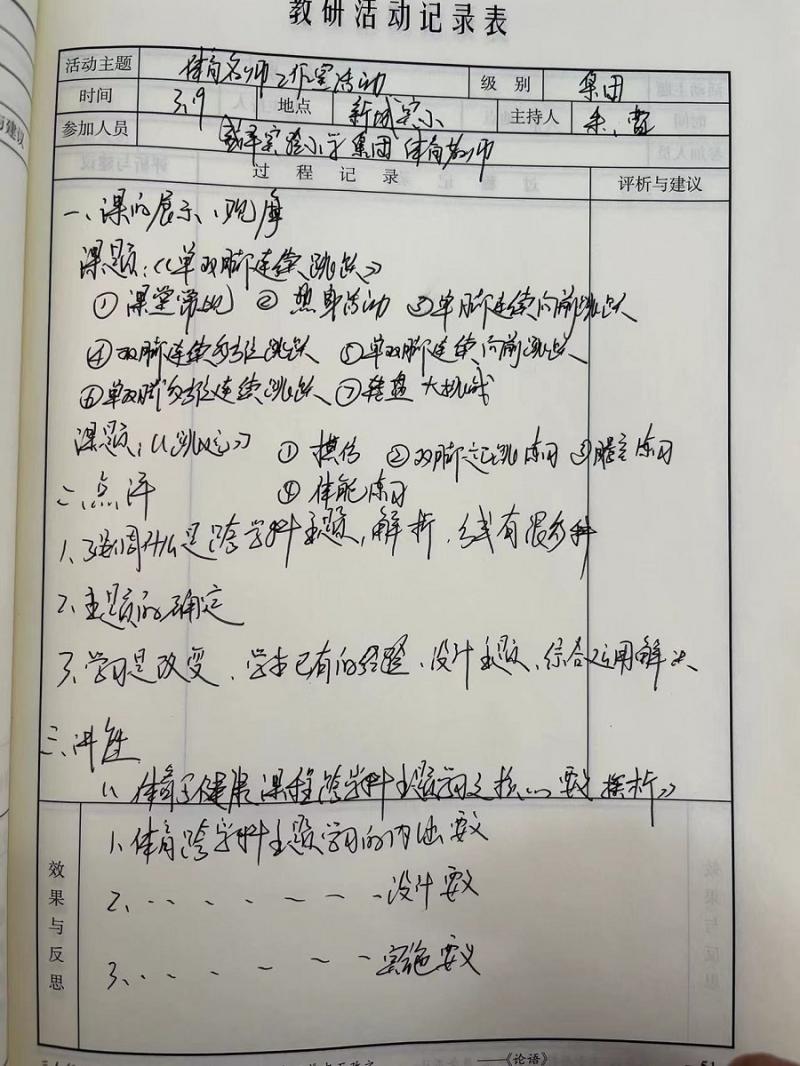 教研活动记录表
活动主题 体育名师工作室活动 级别 集团
时间 3.9 地点 新城实小 主持人 朱、曹
参加人员 盛泽实验小学集团体育教师
过程记录 评析与建议
一、课的展示、观摩
课题:《单双脚连续跳跃》
① 课堂常规 ② 热身活动 ③单脚连续向前跳跃
④双脚连续多方位跳跃 ⑤单双脚连续向前跳跃
⑥单双脚多方位连续跳跃 ⑦转盘大挑战
课题:《跳远》 ① 模仿 ②双脚立定跳练习 ③腾空练习
④ 体能练习
二、点评
1、强调什么是跨学科主题,解析,方式有很多种
2、主题的确定
3、学习是改变、学生已有的经验、设计主题、综合运用解决
三、讲座
《体育与健康课程跨学科主题学习之核心要义探析》
效果与反思
1、体育跨学科主题学习的内涵要义
2、、、、、、、设计要义
3、、、、、、、实施要义
——《论语》
51